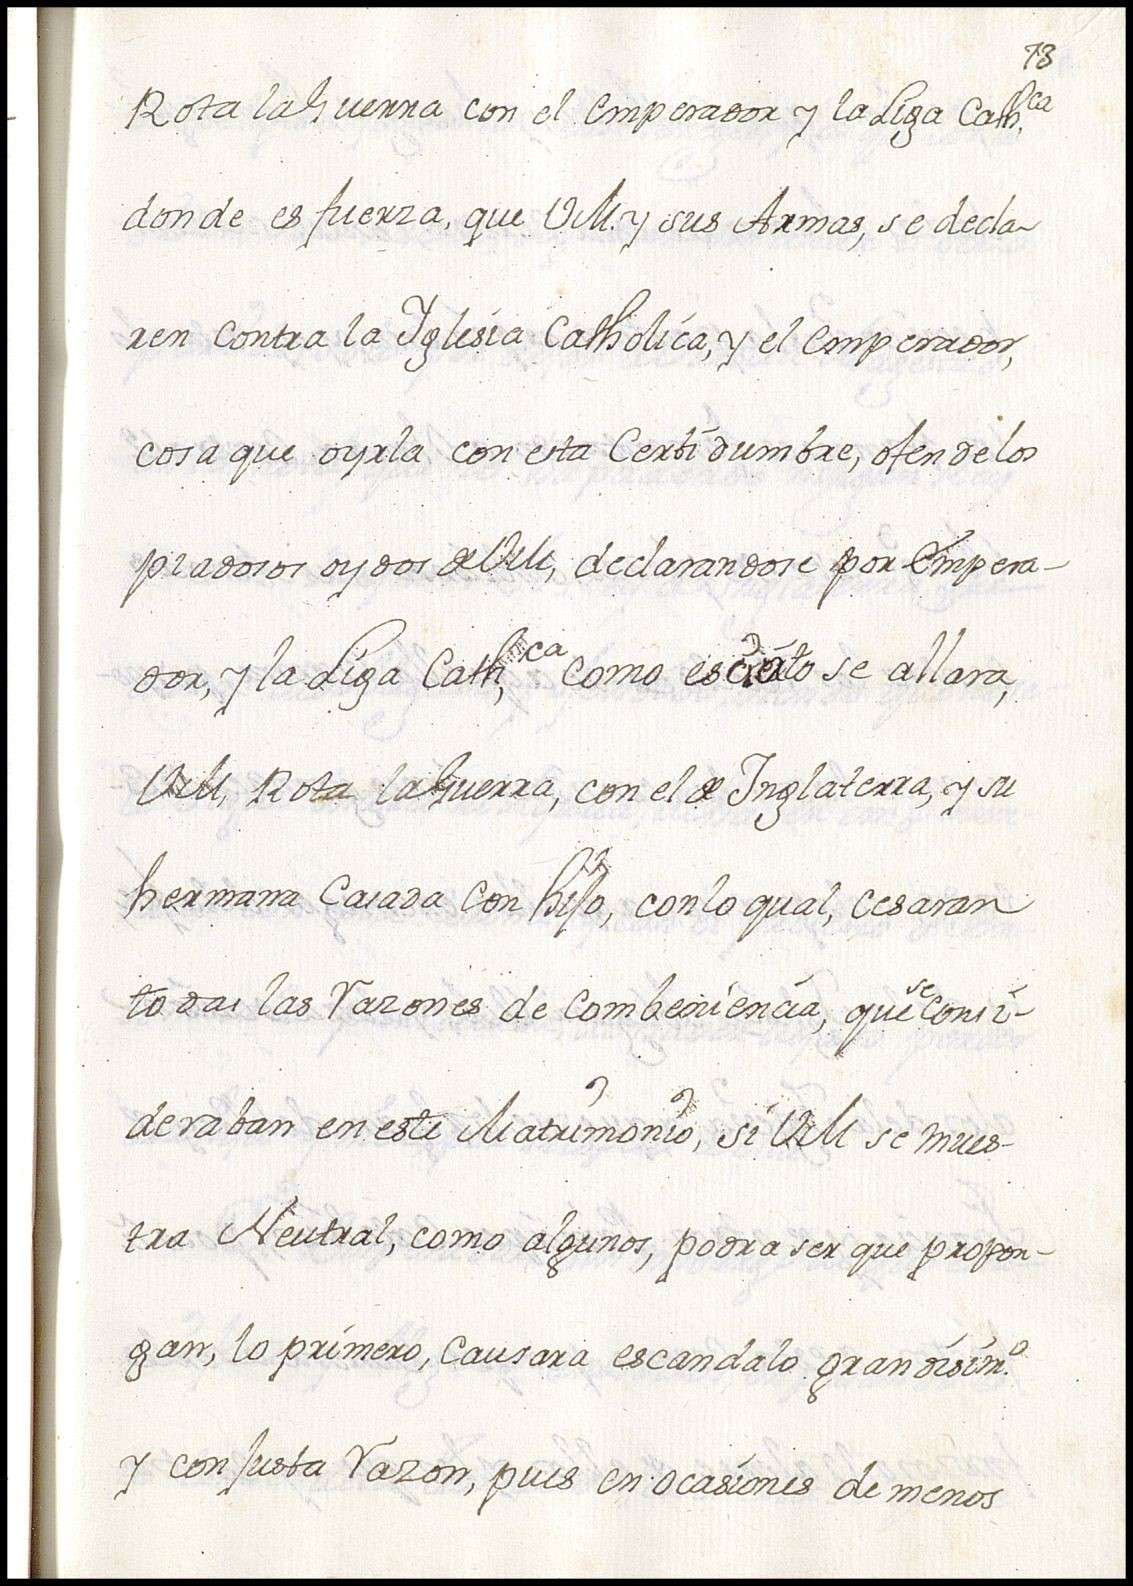 73
Rota la Guerra con el Emperador y la Liga Cath.ca
donde es fuerza, que VM. y sus Armas, se decla-
ren contra la Yglesia Catholica, y el Emperador,
cosa que oyrla con esta Certidumbre, ofende los
piadosos oydos de VM, declarandose por Empera-
dor, y la Liga Cath,ca como escrito se allara,
VM, Rota la Guerra, con el de Inglaterra, y su
hermana Casada con hijo, con lo qual, cesaran
todas las razones de combeniencia, que se consi-
deraban en este Matrimonio, si VM se mues-
tra Neutral, como algunos, podra ser que propon-
gan, lo primero, causara escandalo grandisim.o
y con Justa razon, pues en ocasiones de menos